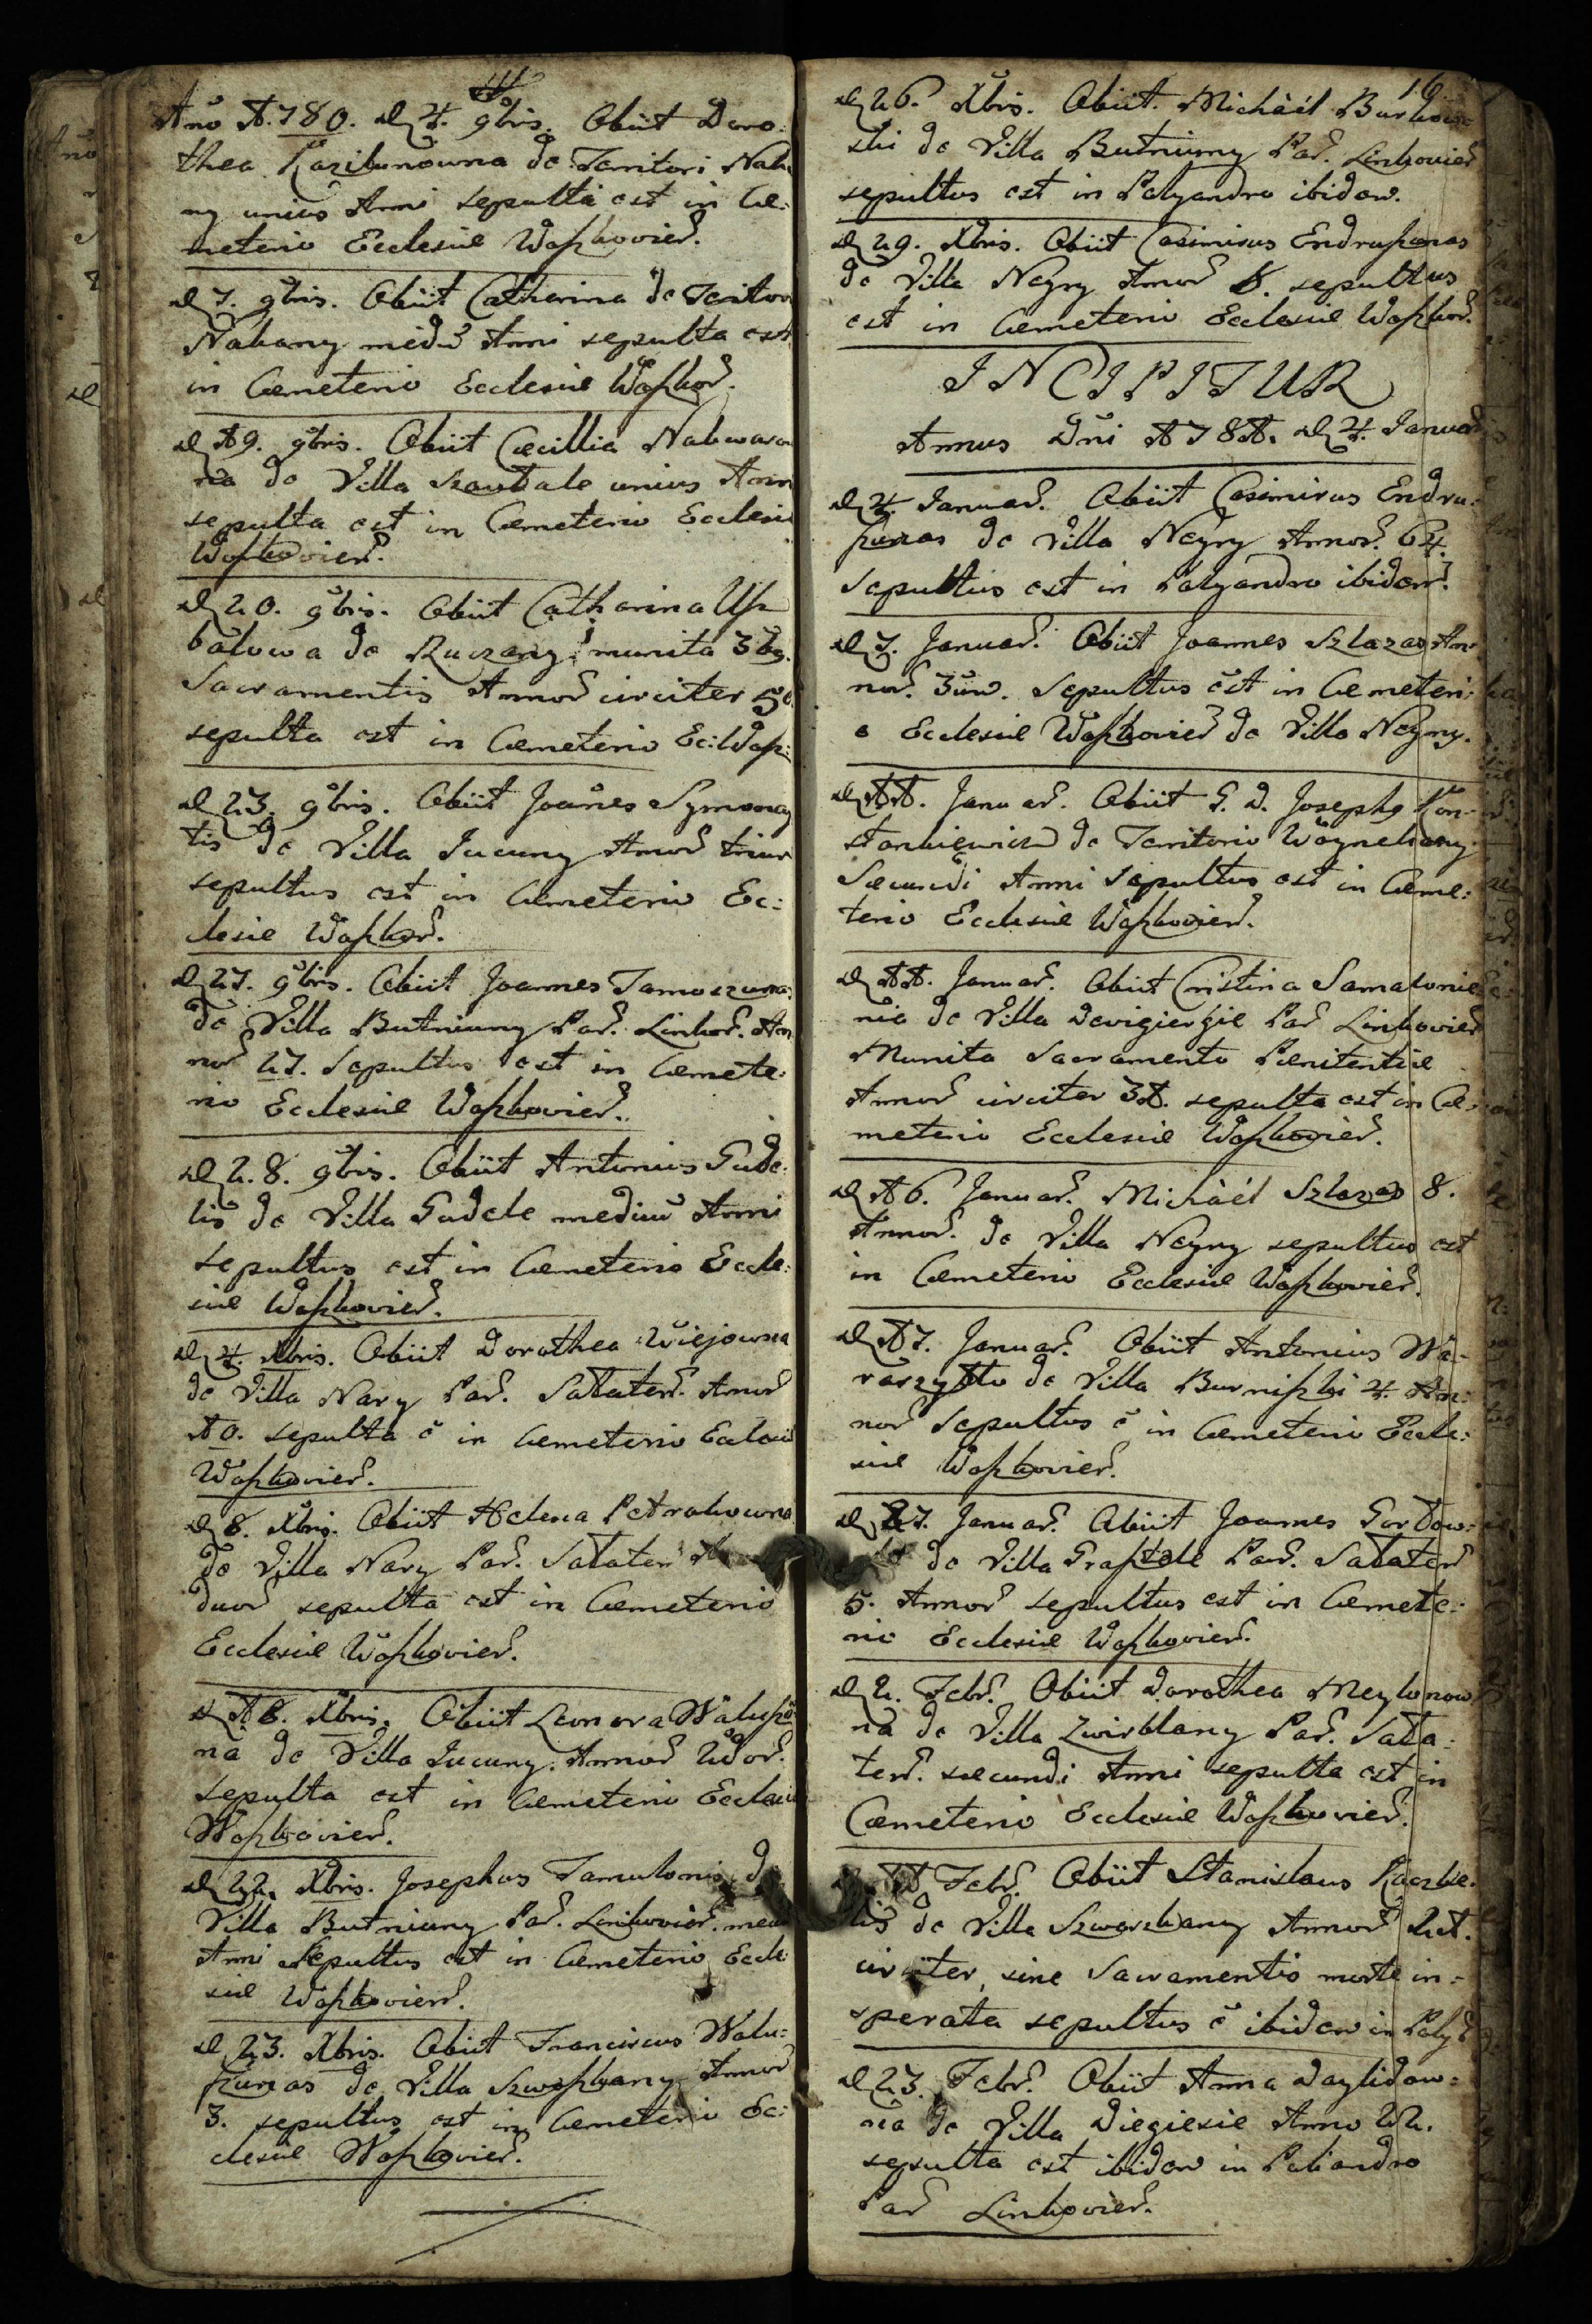 Año 1780. d 4. 9bris. Obiit Doro:
thea Kazilunowna de Territori Nak
ny unius Anni sepulta est in Cæ:
meterio Ecclesiæ Waszkovien.
d 7. 9bris. Obiit Catharina de Teritori
Nakany mediu Anni sepulta est
in Cæmeterio Ecclesiæ Waszkov.
d 19. 9bris. Obiit Cæcillia
na de Villa unius Anni
sepulta est in Cæmeterio Ecclesiæ
Waszkovien.
d 20. 9bris. Obiit Catharina Usz
balowa de Ruczany munita 3bg.
Sacramentis Annor circiter 50
sepulta est in Cæmeterio Ec: Wasz:
d 23. 9bris. Obiit Joañes Symona
tis de Villa Jucuny Annor trium
sepultus est in Cæmeterio Ec:
clesiæ Waszkov.
d 27. 9bris. Obiit Joannes Tamoszuna
de Villa Butniuny Par. Linkov. An
nor 27. Sepultus est in Cæmete:
rio Ecclesiæ Waszkovien.
d 28. 9bris. Obiit Antonius Gude:
lis de Villa Gudele mediuu Anni
sepultus est in Cæmeterio Eccle:
siæ Waszkovien.
d 4. Xbris. Obiit Dorothea Wiejowna
de Villa Nary Par. Sałaten. Annor
10. sepulta ẽ in Cæmeterio Eclesiæ
Waszkovien.
d 8. Xbris. Obiit Helena Petrakowna
de Villa Nary Par. Sałaten
duor sepulta est in Cæmeterio
Ecclesiæ Waszkovien.
d 18. Xbris. Obiit Leonora Walusz
na de Villa Jucuny. Annor 2dor.
sepulta est in Cæmeterio Ecclesiæ
Waszkovien.
d 22. Xbris. Josephus Tamulonis de
Villa Butniuny Par. Linkovien.
Anni Sepultus est in Cæmeterio Eccle:
siæ Waszkovien.
d 23. Xbris. Obiit Franciscus Walu:
szunas de Villa Szwaszkany Annor
3. sepultus est in Cæmeterio Ec:
clesiæ Waszkovien.
16
d 26. Xbris. Obiit. Michàél Burkow:
ski de Villa Butniuny Par. Linkovien
sepultus est in Polyandro ibidem.
d 29. Xbris. Obiit Casimirus Endruszonas
de Villa Neyny Annor 8. sepultus
est in Cæmeterio Ecclesiæ Waszkov.
INCIPITUR
Annus Dñi 1781. d 4. Januar
d 4. Januar. Obiit Casimirus Endru:
szunas de Villa Neyny Annor. 64.
Sepultus est in Polyandro ibidem.
d 7. Januar. Obiit Joannes Szlazas An
nor. 3um. Sepultus est in Cæmeteri:
o Ecclesiæ Waszkovien de Villa Neyny.
d 11. Januar. Obiit G. D. Josephg Kon:
stankiewicz de Territorio Woyneliany
Secundi Anni Sepultus est in Cæme:
terio Ecclesiæ Waszkovien.
d 11. Januar. Obiit Cristina Samalonie
nie de Villa Davigiergie Par Linkovien
Munita Sacramento Pœnitentiæ
Annor circiter 31. sepulta est in Cæ:
meterio Ecclesiæ Waszkovien.
d 16. Januar. Michàél Szlazas 8.
Annor. de Villa Neyny sepultus est
in Cæmeterio Ecclesiæ Waszkovien.
d 17. Januar. Obiit Antonius Wa:
raszytto de Villa Burniszki 4. An:
nor Sepultus ẽ in Cæmeterio Eccle:
siæ Waszkovien.
d 27. Januar. Obiit Joannes Gordow:
de Villa Grasztale Par. Sałaten
5. Annor sepultus est in Cæmete:
rio Ecclesiæ Waszkovien.
d 2. Febr. Obiit Dorothea Meylunow
na de Villa Zwirblany Par. Sała:
ten. secundi Anni sepulta est in
Cæmeterio Ecclesiæ Waszkovien.
11 Febr. Obiit Stanislaus Kaczke.
lis de Villa Szwaszkany Annor
circiter, sine Sacramentis morte in:
sperata sepultus ẽ ibidem in Poly
d 23. Febr. Obiit Anna Daylidow:
na de Villa Diegiesie Anno 22.
sepulta est ibidem in Poliandro
Par Linkovien.